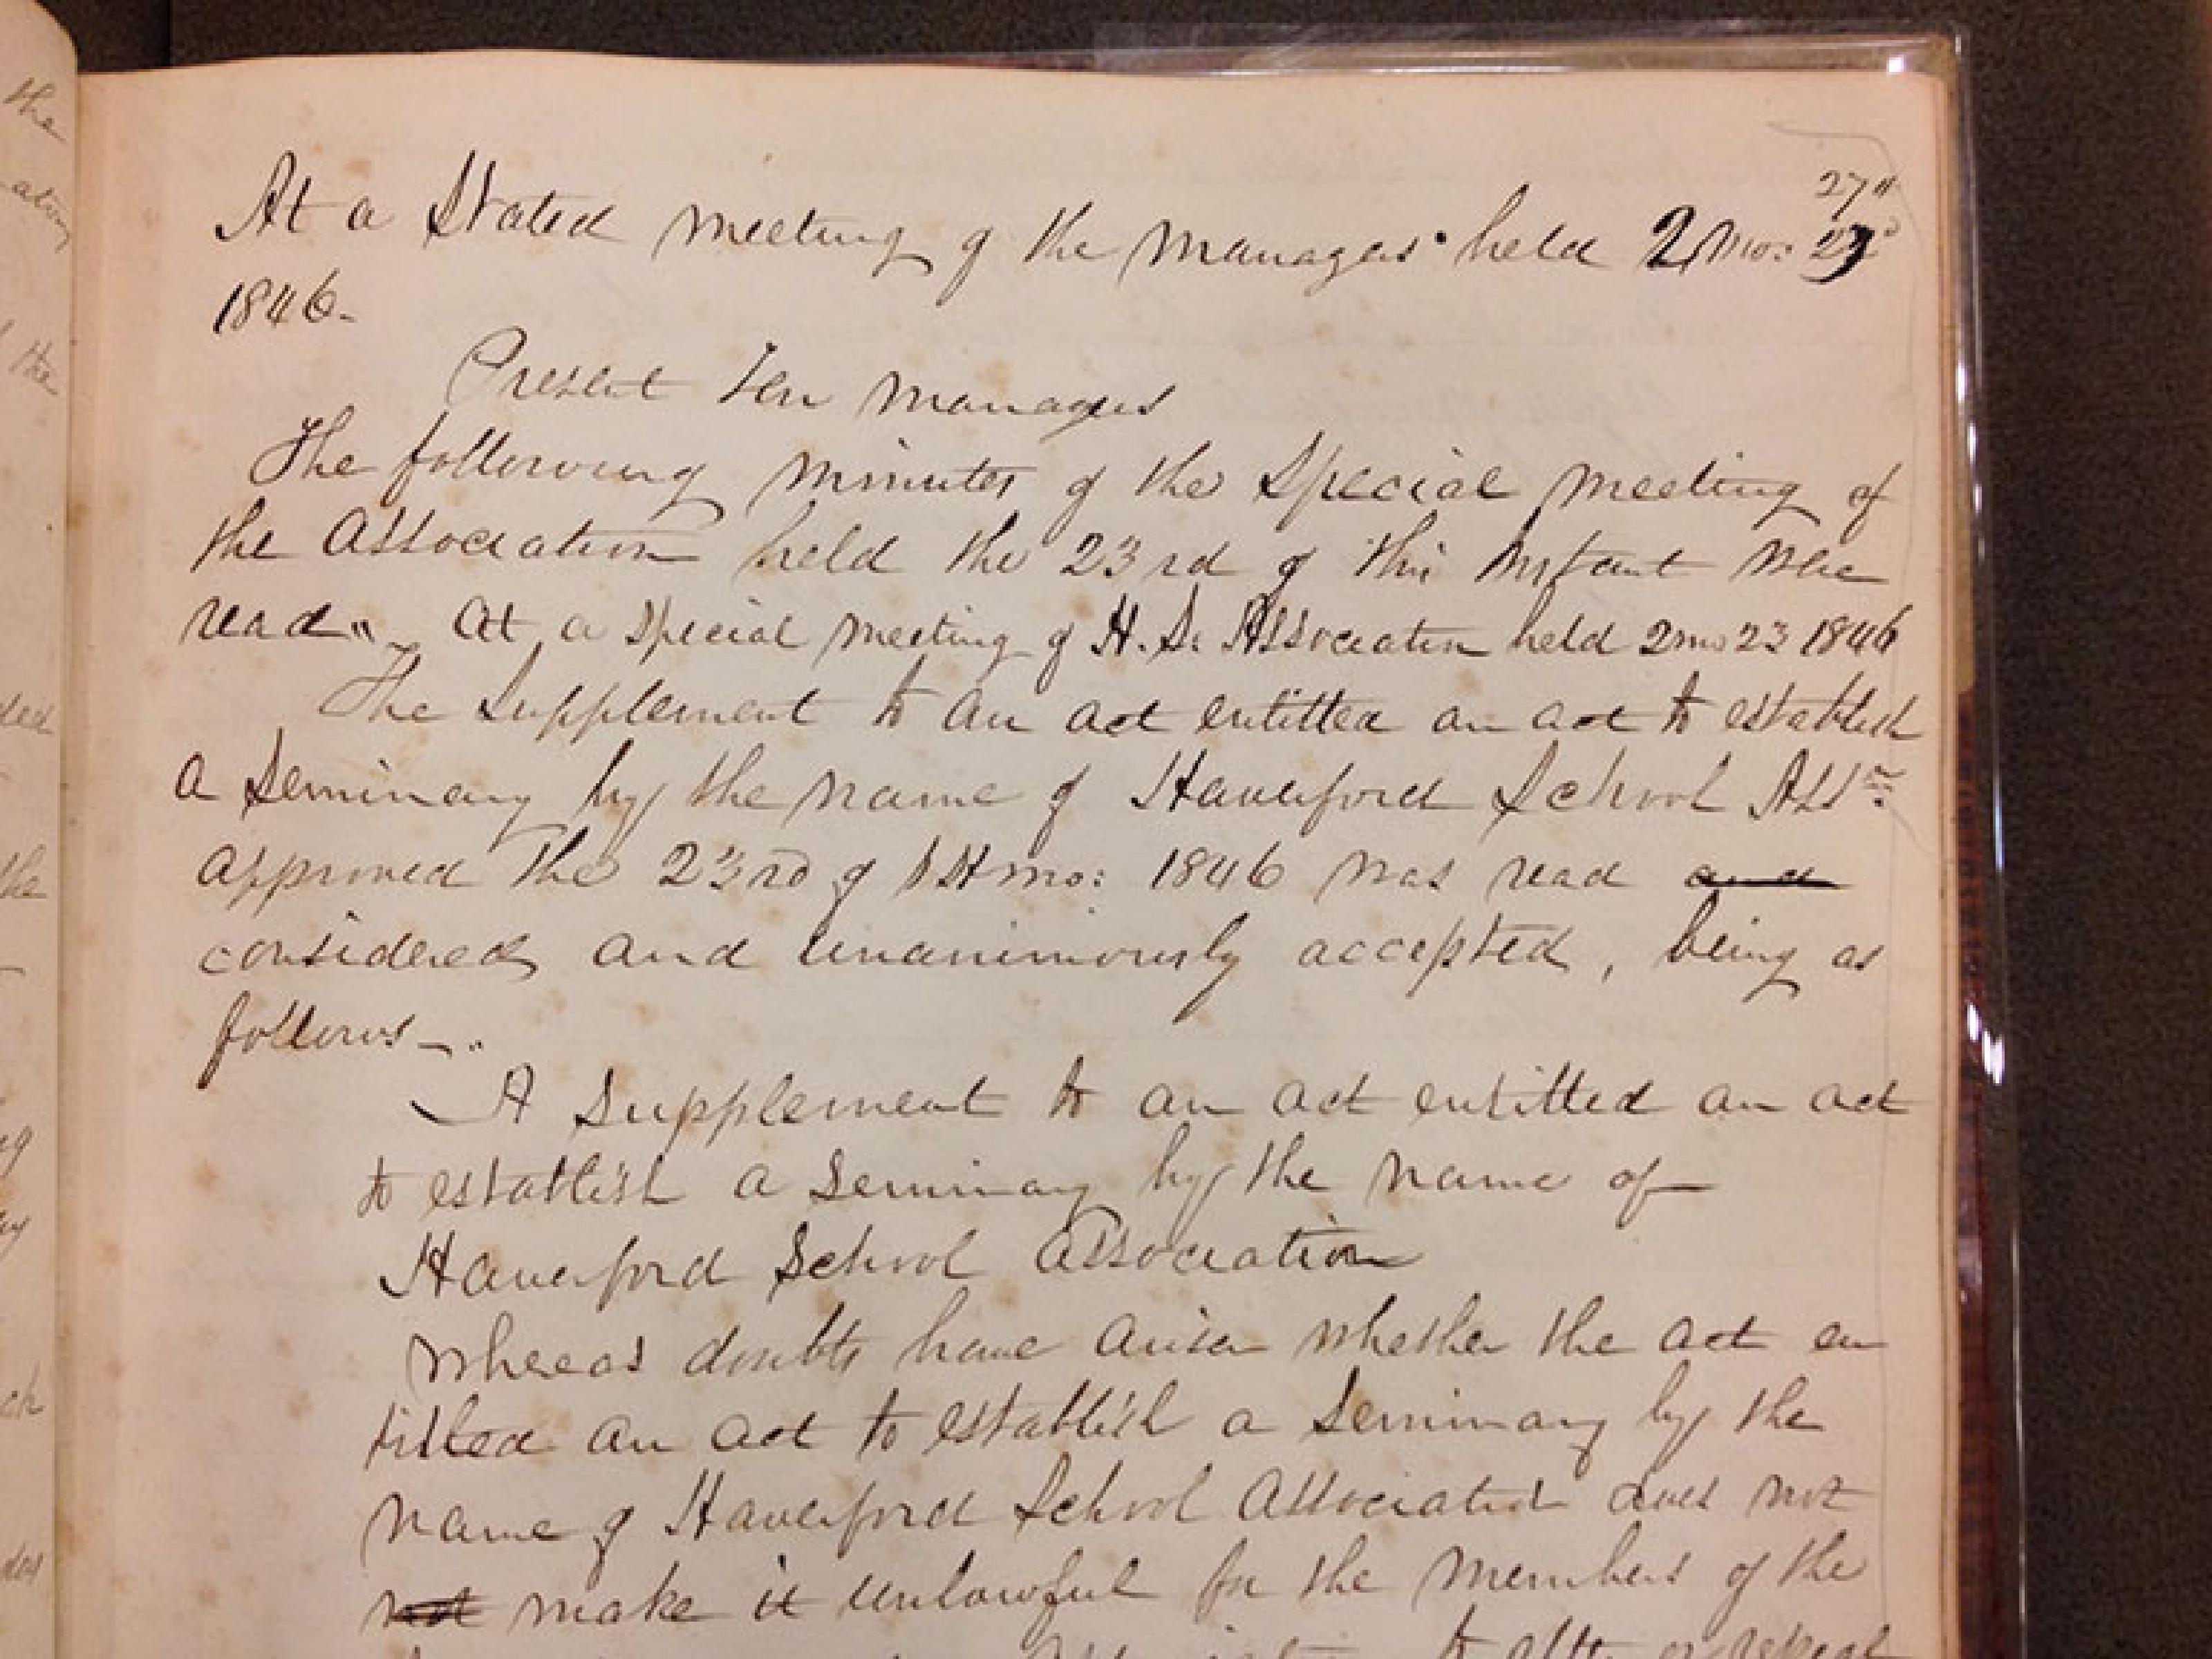 27"
At a Stated meeting of the Managers held 2 mo: 27
1846-
Present Ten Managers
The following minutes of the Special meeting of
the Association held the 23rd of this instant were
read" - At a Special meeting of H. S. Association held 2mo 23 1846
The Supplement to an act entitled an act to establish
a Seminary by the name of Haverford School Assn.
approved the 23rd of 1st mo: 1846 was read and
considered and unanimously accepted, being as
follows -..
A Supplement to an act entitled an act
to establish a Seminary by the name of
Haverford School Association
Whereas doubts have arisen whether the act en
titled an act to establish a Seminary by the
name of Haverford School Association does not
not make it unlawful for the members of the
to alter or repeal
the
ation
the
ded
the
ng
ay
ch
des